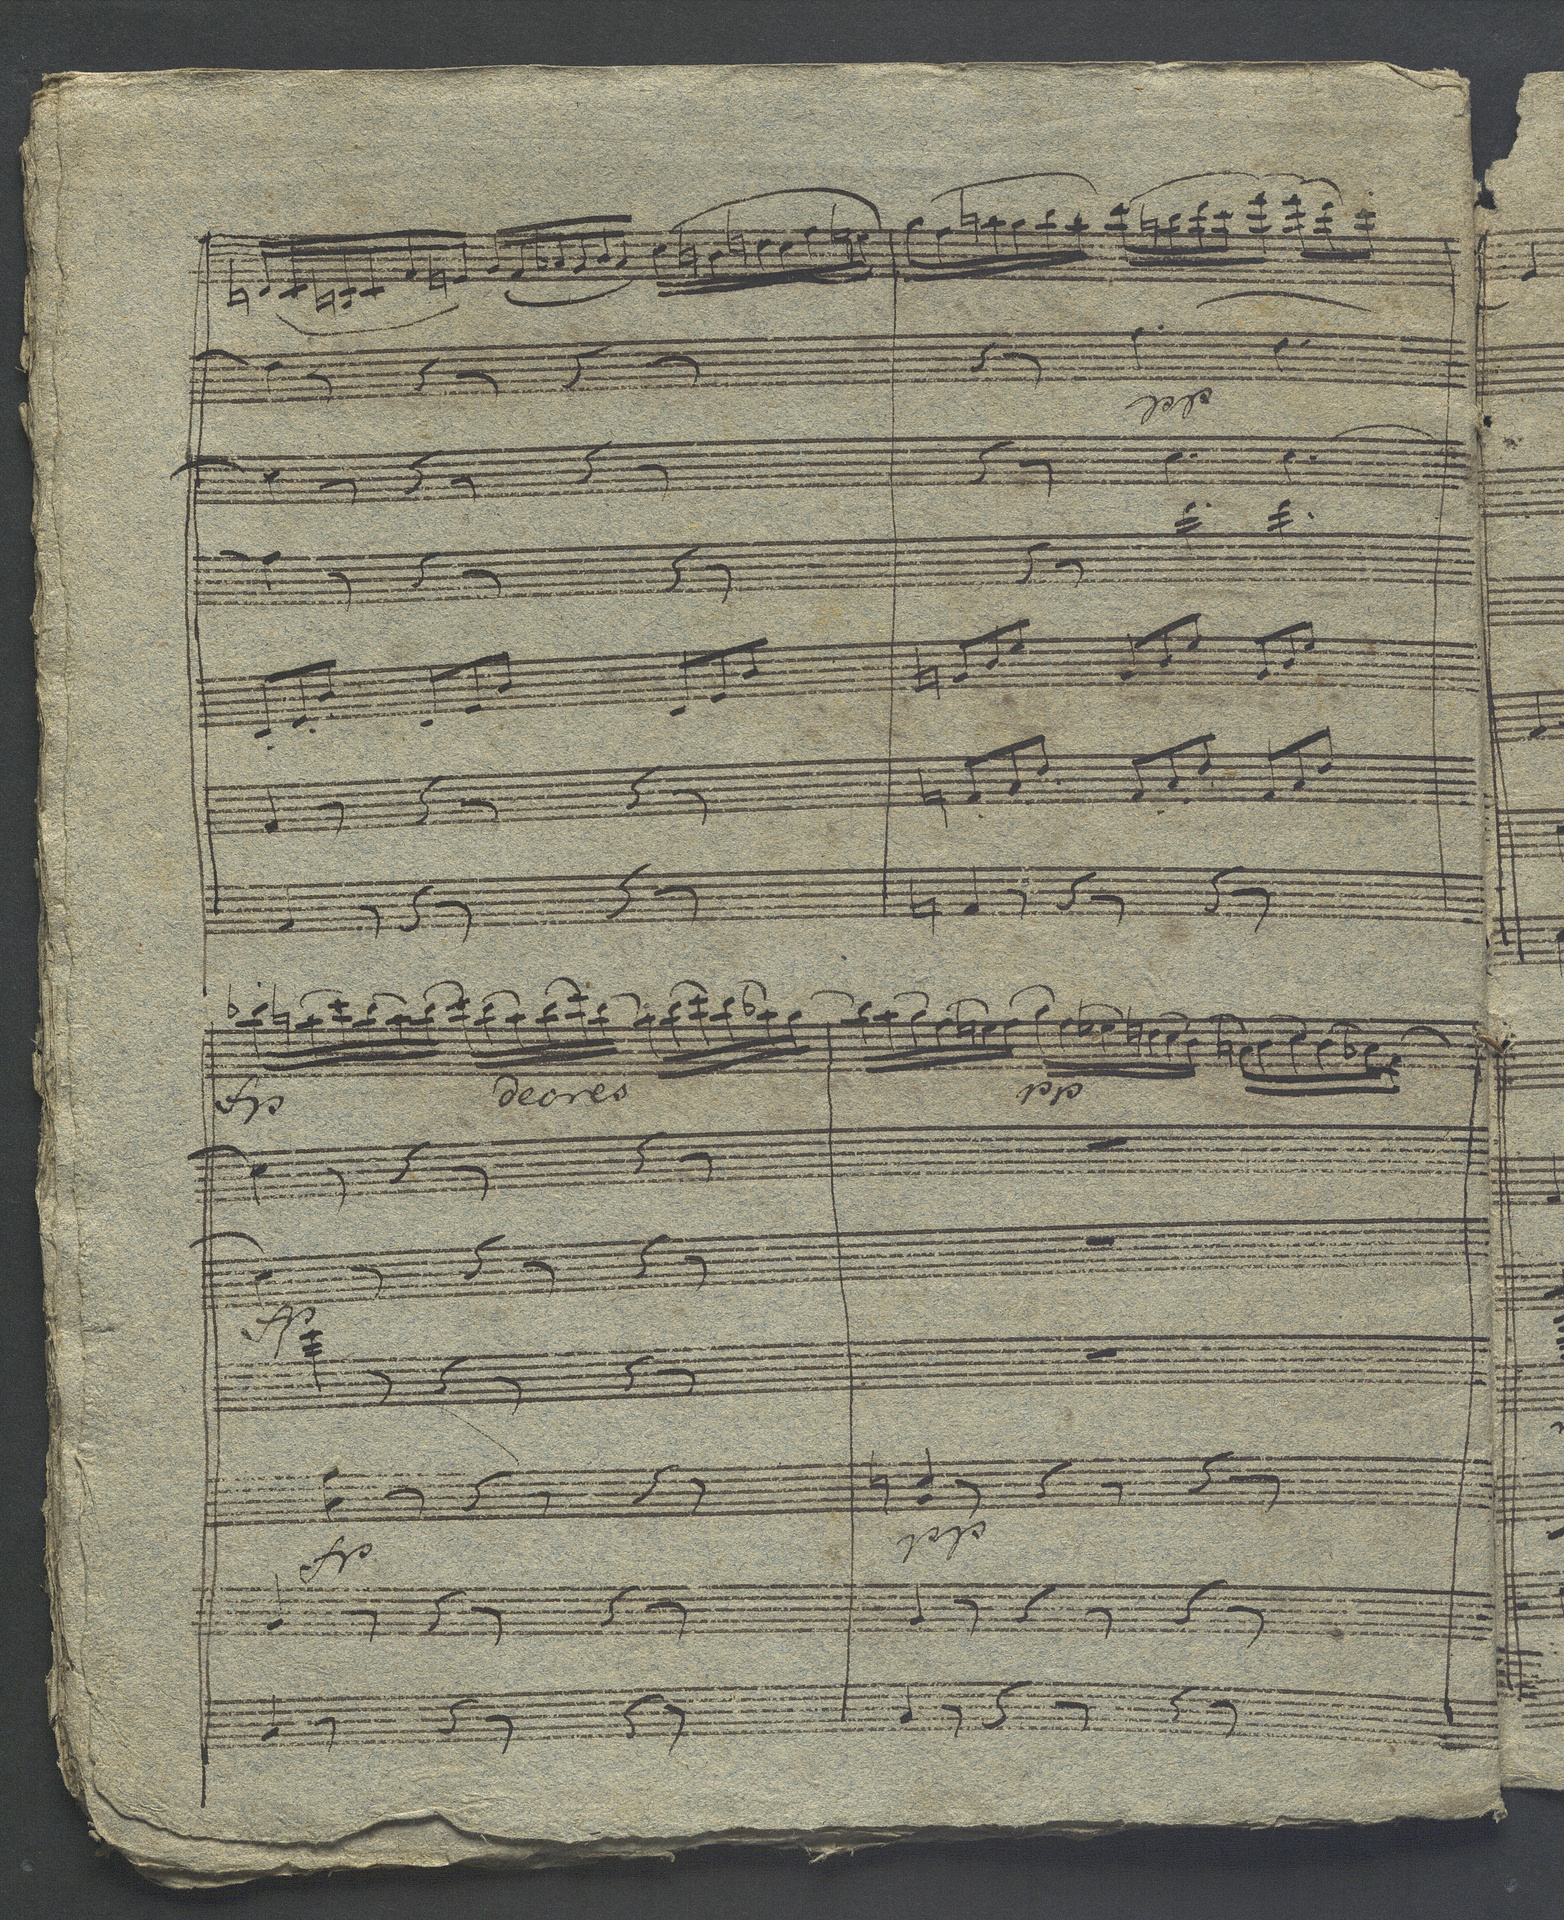 dol
fp decres pp
fp
fp dol